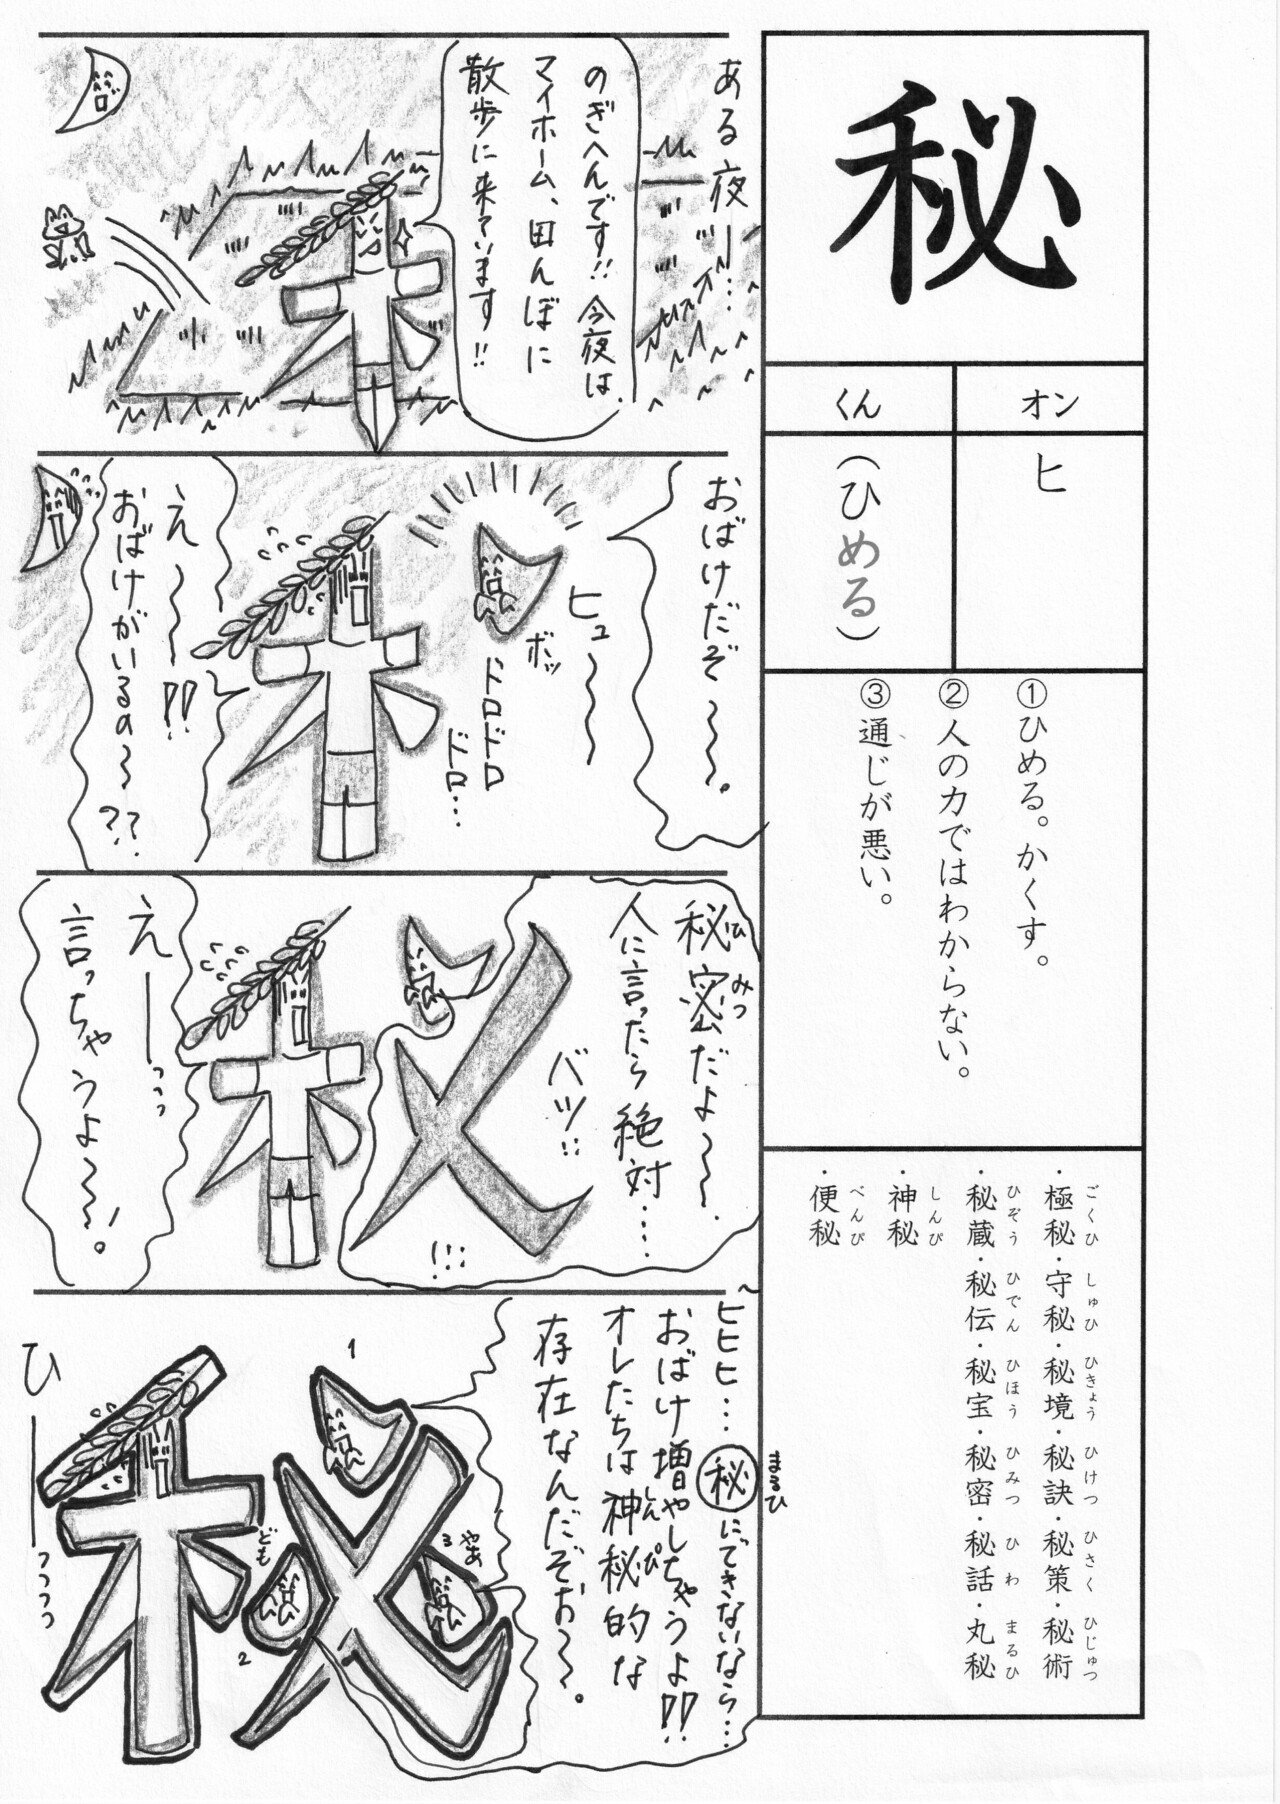 秘
オン
ヒ
くん
(ひめる)
①ひめる。かくす。
②人の力ではわからない。
③通じが悪い。
・極秘・守秘・秘境・秘訣・秘策・秘術
ごくひ しゅひ ひきょう ひけつ ひさく ひじゅつ
・秘蔵・秘伝・秘宝・秘密・秘話・丸秘
ひぞう ひでん ひほう ひみつ ひわ まるひ
・神秘
しんぴ
・便秘
べんぴ
ある夜……
のぎへんです!!今夜は、
マイホーム、田んぼに
散歩に来ています!!
おばけだぞ〜〜。
ヒュ〜〜
ボッ
ドロドロ
ドロ…
え〜〜!!
おばけがいるの〜??
秘密だよ〜〜。
ひ みつ
人に言ったら絶対……
バツ!!
!!!
えーーっっっ
言っちゃうよ〜〜!
ヒヒヒ…㊙にできないなら…
まるひ
おばけ増やしちゃうよ!!
オレたちは神秘的な
しんぴ
存在なんだぞお〜。
1
やあ
3
ども
2
ひーーっっっっ